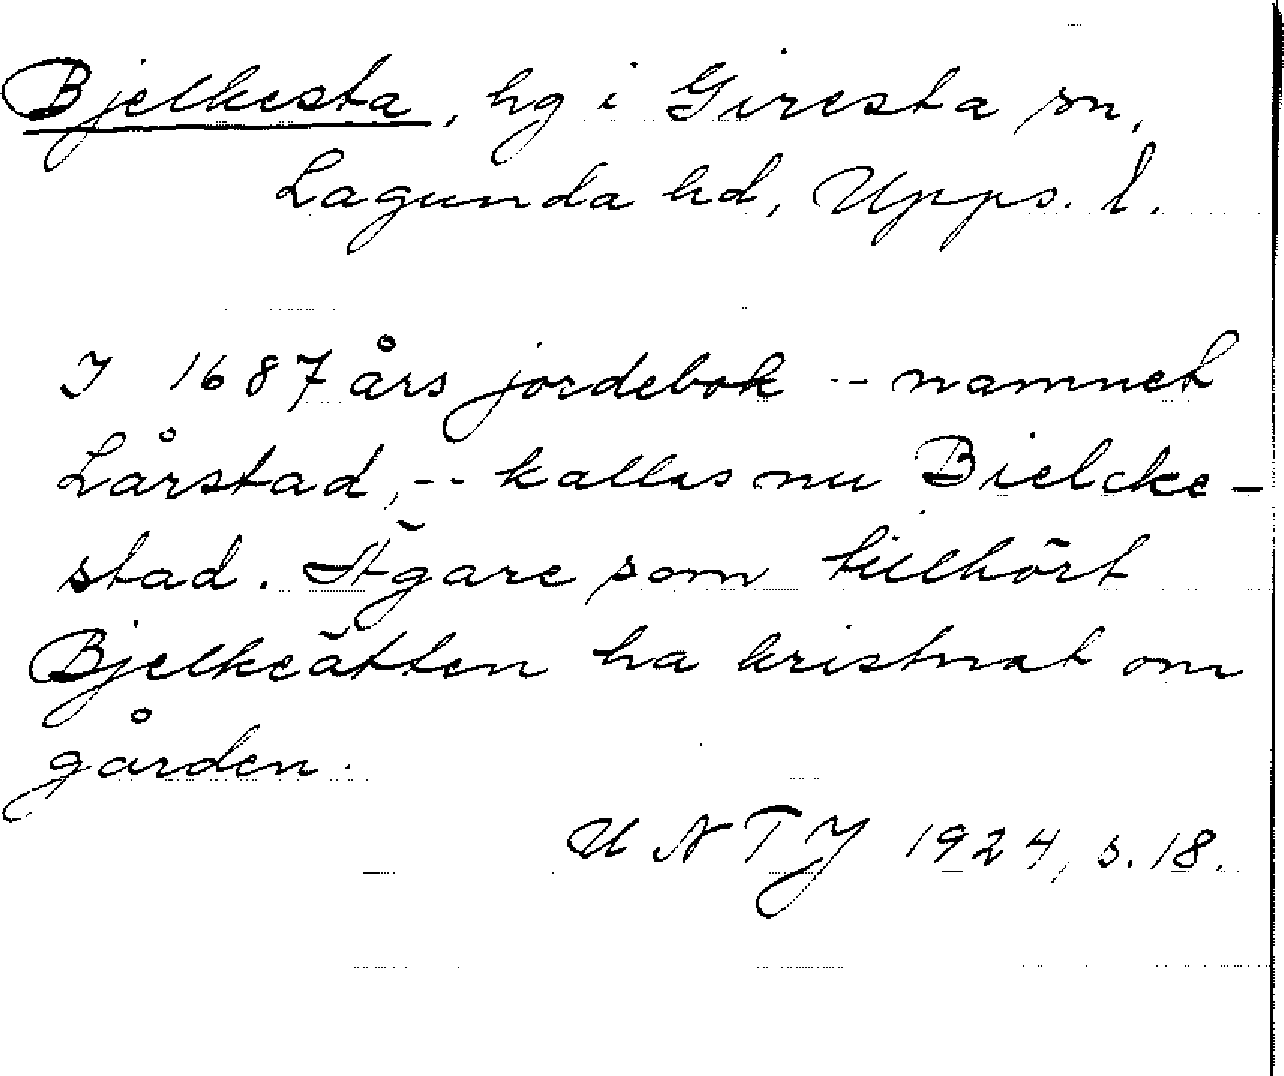 Bjelkesta, hg i Giresta sn,
Lagunda hd, Upps. l.
I 1687 års jordebok -- namnet
Lårstad, -- kallas nu Bielcke-
stad. Ägare som tillhört
Bjelkeätten ha kristnat om
gården.
UNTJ 1924, s. 18.